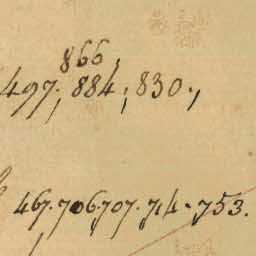 866,
497; 884; 830.,
467.706.707.714.753.